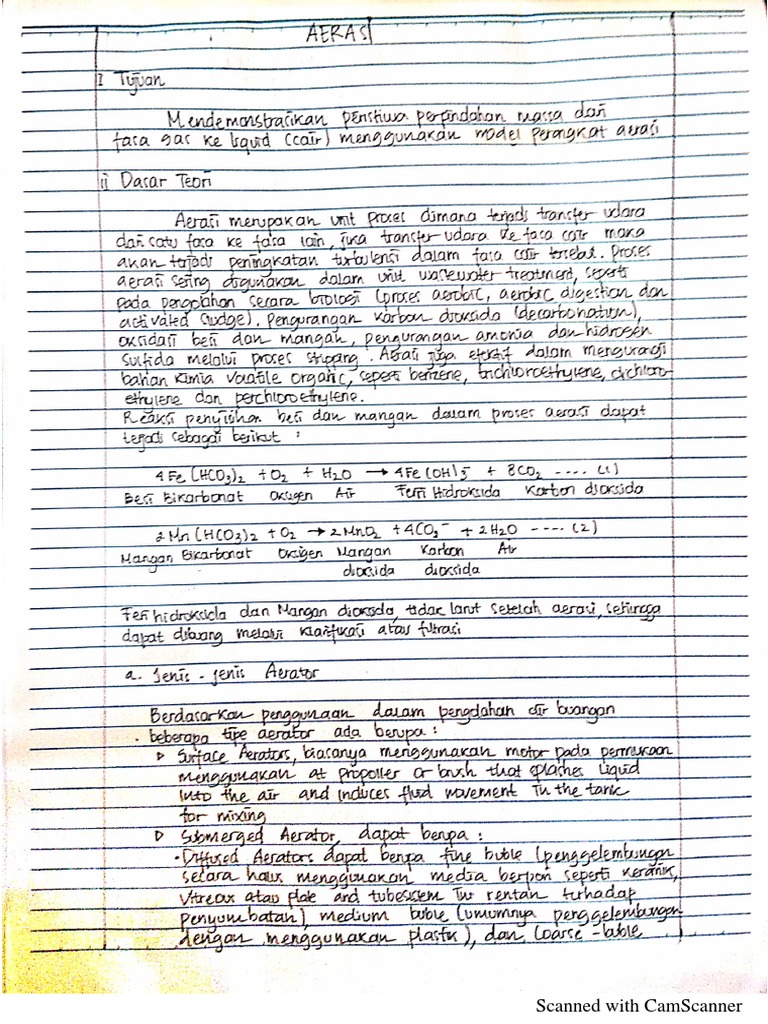 AERASI
I Tujuan
Mendemonstrasikan peristiwa perpindahan massa dari
fasa gas ke liquid (cair) menggunakan model perangkat aerasi
ii Dasar Teori
Aerasi merupakan unit proses dimana terjadi transfer udara
dari satu fasa ke fasa lain, jika transfer udara ke fasa cair maka
akan terjadi peningkatan turbulensi dalam fasa cair tersebut. Proses
aerasi sering digunakan dalam unit wastewater treatment, seperti
pada pengolahan secara biologi (proses aerobic, aerobic digestion dan
activated sludge). Pengurangan karbon dioksida (decarbonation),
oksidasi besi dan mangan, pengurangan amonia dan hidrogen
sulfida melalui proses stripang. Aerasi juga efektif dalam mengurangi
bahan kimia volatile organic, seperti benzene, trichloroethylene, dichloro-
ethylene dan perchloroethylene.
Reaksi penyisihan besi dan mangan dalam proses aerasi dapat
terjadi sebagai berikut :
4Fe(HCO3)2 + O2 + H2O → 4Fe(OH)3 + 8CO2 .... (1)
Besi Bikarbonat Oksigen Air Ferri Hidroksida Karbon dioksida
2Mn(HCO3)2 + O2 → 2MnO2 + 4CO2 + 2H2O ---- (2)
Mangan Bikarbonat Oksigen Mangan Karbon Air
dioksida dioksida
Ferri hidroksida dan Mangan dioksida, tidak larut setelah aerasi, sehingga
dapat dibuang melalui klarifikasi atau filtrasi
a. Jenis - jenis Aerator
Berdasarkan penggunaan dalam pengolahan air buangan
beberapa tipe aerator ada berupa :
▷ Surface Aerators, biasanya menggunakan motor pada permukaan
menggunakan at propoller or brush that splashes liquid
into the air and induces fluid movement in the tank
for mixing
▷ Submerged Aerator, dapat berupa :
• Diffused Aerators dapat berupa fine buble (penggelembungan
secara halus menggunakan media berpori seperti keramik,
vitreous atau plate and tubesistem rentan terhadap
penyumbatan) medium buble (umumnya penggelembungan
dengan menggunakan plastik), dan Coarse-buble
Scanned with CamScanner